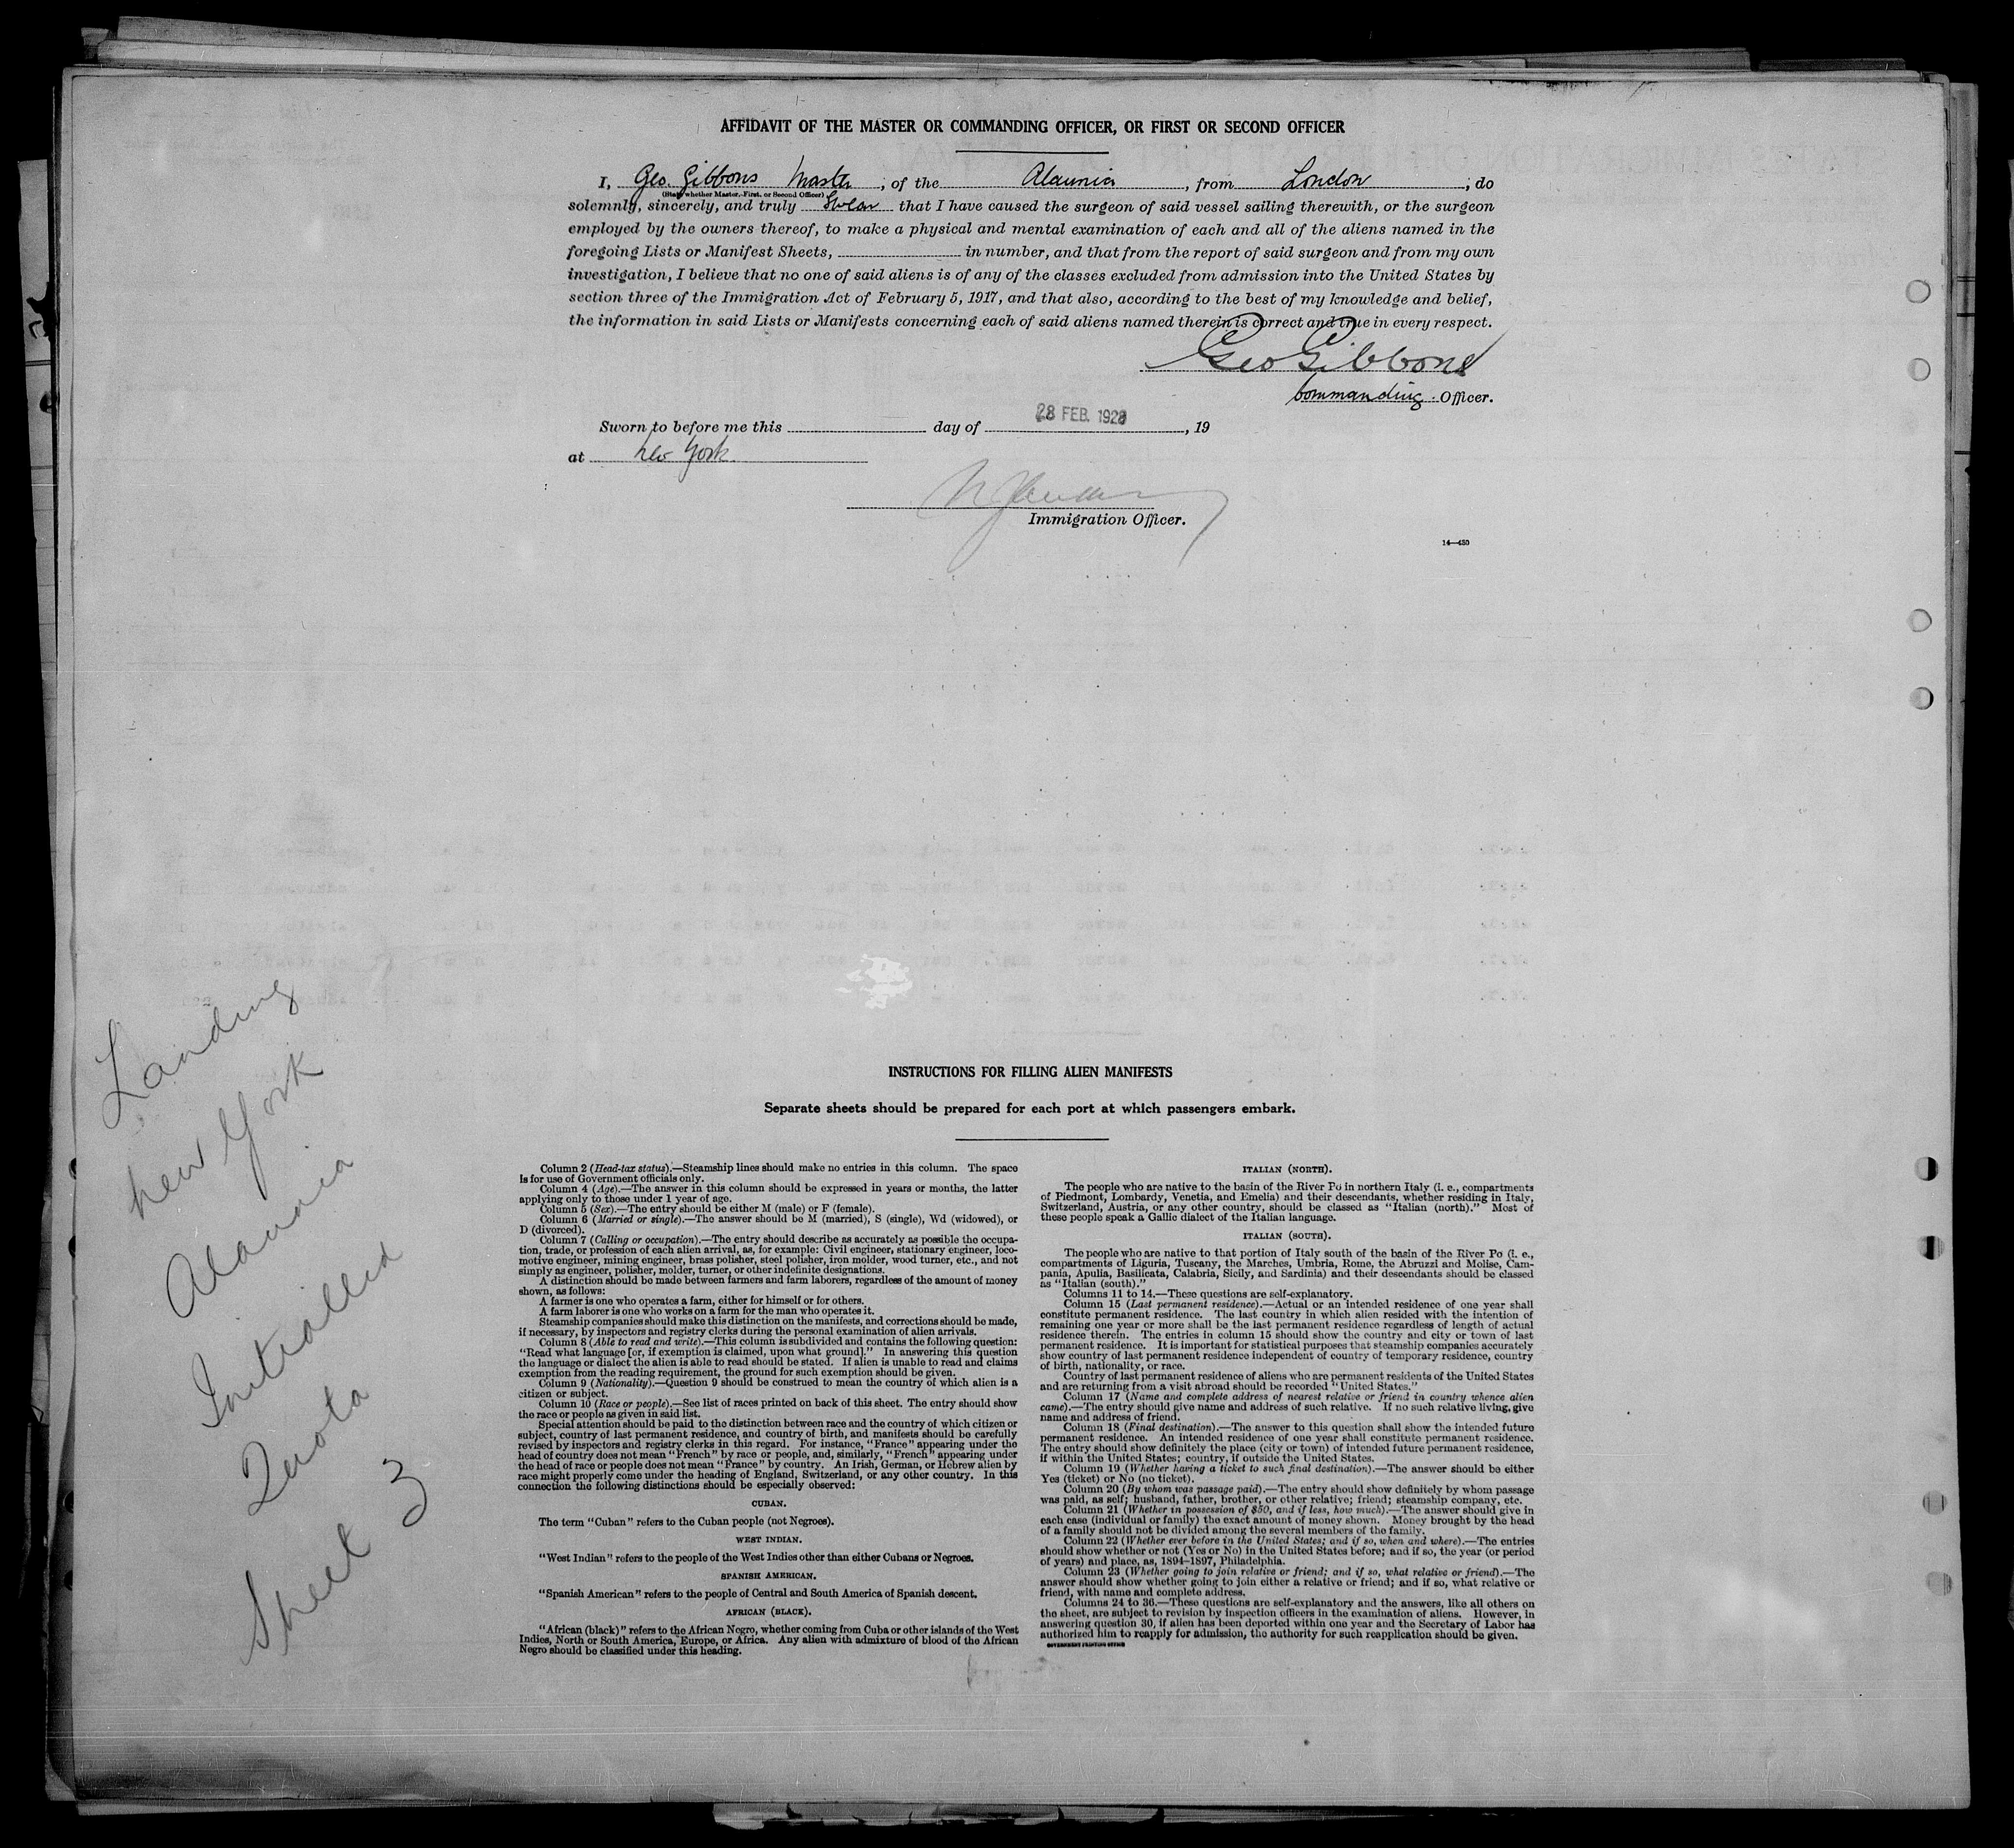 AFFIDAVIT OF THE MASTER OR COMMANDING OFFICER, OR FIRST OR SECOND OFFICER
I, Geo. Gibbons Master, of the Alaunia, from London; do
(State whether Master, First, or Second Officer)
solemnly, sincerely, and truly Swear that I have caused the surgeon of said vessel sailing therewith, or the surgeon
employed by the owners thereof, to make a physical and mental examination of each and all of the aliens named in the
foregoing Lists or Manifest Sheets, in number, and that from the report of said surgeon and from my own
investigation, I believe that no one of said aliens is of any of the classes excluded from admission into the United States by
section three of the Immigration Act of February 5, 1917, and that also, according to the best of my knowledge and belief,
the information in said Lists or Manifests concerning each of said aliens named therein is correct and true in every respect.
Geo Gibbons
Commanding Officer.
28 FEB. 1928
Sworn to before me this day of , 19
at New York
Immigration Officer.
14—450
INSTRUCTIONS FOR FILLING ALIEN MANIFESTS
Separate sheets should be prepared for each port at which passengers embark.
Column 2 (Head-tax status).—Steamship lines should make no entries in this column. The space
is for use of Government officials only.
Column 4 (Age).—The answer in this column should be expressed in years or months, the latter
applying only to those under 1 year of age.
Column 5 (Sex).—The entry should be either M (male) or F (female).
Column 6 (Married or single).—The answer should be M (married), S (single), Wd (widowed), or
D (divorced).
Column 7 (Calling or occupation).—The entry should describe as accurately as possible the occupa-
tion, trade, or profession of each alien arrival, as, for example: Civil engineer, stationary engineer, loco-
motive engineer, mining engineer, brass polisher, steel polisher, iron molder, wood turner, etc., and not
simply as engineer, polisher, molder, turner, or other indefinite designations.
A distinction should be made between farmers and farm laborers, regardless of the amount of money
shown, as follows:
A farmer is one who operates a farm, either for himself or for others.
A farm laborer is one who works on a farm for the man who operates it.
Steamship companies should make this distinction on the manifests, and corrections should be made,
if necessary, by inspectors and registry clerks during the personal examination of alien arrivals.
Column 8 (Able to read and write).—This column is subdivided and contains the following question:
"Read what language [or, if exemption is claimed, upon what ground]." In answering this question
the language or dialect the alien is able to read should be stated. If alien is unable to read and claims
exemption from the reading requirement, the ground for such exemption should be given.
Column 9 (Nationality).—Question 9 should be construed to mean the country of which alien is a
citizen or subject.
Column 10 (Race or people).—See list of races printed on back of this sheet. The entry should show
the race or people as given in said list.
Special attention should be paid to the distinction between race and the country of which citizen or
subject, country of last permanent residence, and country of birth, and manifests should be carefully
revised by inspectors and registry clerks in this regard. For instance, "France" appearing under the
head of country does not mean "French" by race or people, and, similarly, "French" appearing under
the head of race or people does not mean "France" by country. An Irish, German, or Hebrew alien by
race might properly come under the heading of England, Switzerland, or any other country. In this
connection the following distinctions should be especially observed:
CUBAN.
The term "Cuban" refers to the Cuban people (not Negroes).
WEST INDIAN.
"West Indian" refers to the people of the West Indies other than either Cubans or Negroes.
SPANISH AMERICAN.
"Spanish American" refers to the people of Central and South America of Spanish descent.
AFRICAN (BLACK).
"African (black)" refers to the African Negro, whether coming from Cuba or other islands of the West
Indies, North or South America, Europe, or Africa. Any alien with admixture of blood of the African
Negro should be classified under this heading.
ITALIAN (NORTH).
The people who are native to the basin of the River Po in northern Italy (i. e., compartments
of Piedmont, Lombardy, Venetia, and Emelia) and their descendants, whether residing in Italy,
Switzerland, Austria, or any other country, should be classed as "Italian (north)." Most of
these people speak a Gallic dialect of the Italian language.
ITALIAN (SOUTH).
The people who are native to that portion of Italy south of the basin of the River Po (i. e.,
compartments of Liguria, Tuscany, the Marches, Umbria, Rome, the Abruzzi and Molise, Cam-
pania, Apulia, Basilicata, Calabria, Sicily, and Sardinia) and their descendants should be classed
as "Italian (south)."
Columns 11 to 14.—These questions are self-explanatory.
Column 15 (Last permanent residence).—Actual or an intended residence of one year shall
constitute permanent residence. The last country in which alien resided with the intention of
remaining one year or more shall be the last permanent residence regardless of length of actual
residence therein. The entries in column 15 should show the country and city or town of last
permanent residence. It is important for statistical purposes that steamship companies accurately
show country of last permanent residence independent of country of temporary residence, country
of birth, nationality, or race.
Country of last permanent residence of aliens who are permanent residents of the United States
and are returning from a visit abroad should be recorded "United States."
Column 17 (Name and complete address of nearest relative or friend in country whence alien
came).—The entry should give name and address of such relative. If no such relative living, give
name and address of friend.
Column 18 (Final destination).—The answer to this question shall show the intended future
permanent residence. An intended residence of one year shall constitute permanent residence.
The entry should show definitely the place (city or town) of intended future permanent residence,
if within the United States; country, if outside the United States.
Column 19 (Whether having a ticket to such final destination).—The answer should be either
Yes (ticket) or No (no ticket).
Column 20 (By whom was passage paid).—The entry should show definitely by whom passage
was paid, as self; husband, father, brother, or other relative; friend; steamship company, etc.
Column 21 (Whether in possession of $50, and if less, how much).—The answer should give in
each case (individual or family) the exact amount of money shown. Money brought by the head
of a family should not be divided among the several members of the family.
Column 22 (Whether ever before in the United States; and if so, when and where).—The entries
should show whether or not (Yes or No) in the United States before; and if so, the year (or period
of years) and place, as, 1894–1897, Philadelphia.
Column 23 (Whether going to join relative or friend; and if so, what relative or friend).—The
answer should show whether going to join either a relative or friend; and if so, what relative or
friend, with name and complete address.
Columns 24 to 36.—These questions are self-explanatory and the answers, like all others on
the sheet, are subject to revision by inspection officers in the examination of aliens. However, in
answering question 30, if alien has been deported within one year and the Secretary of Labor has
authorized him to reapply for admission, the authority for such reapplication should be given.
GOVERNMENT PRINTING OFFICE
Landing
New York
Alaunia
Initialled
Quota
Sheet 3